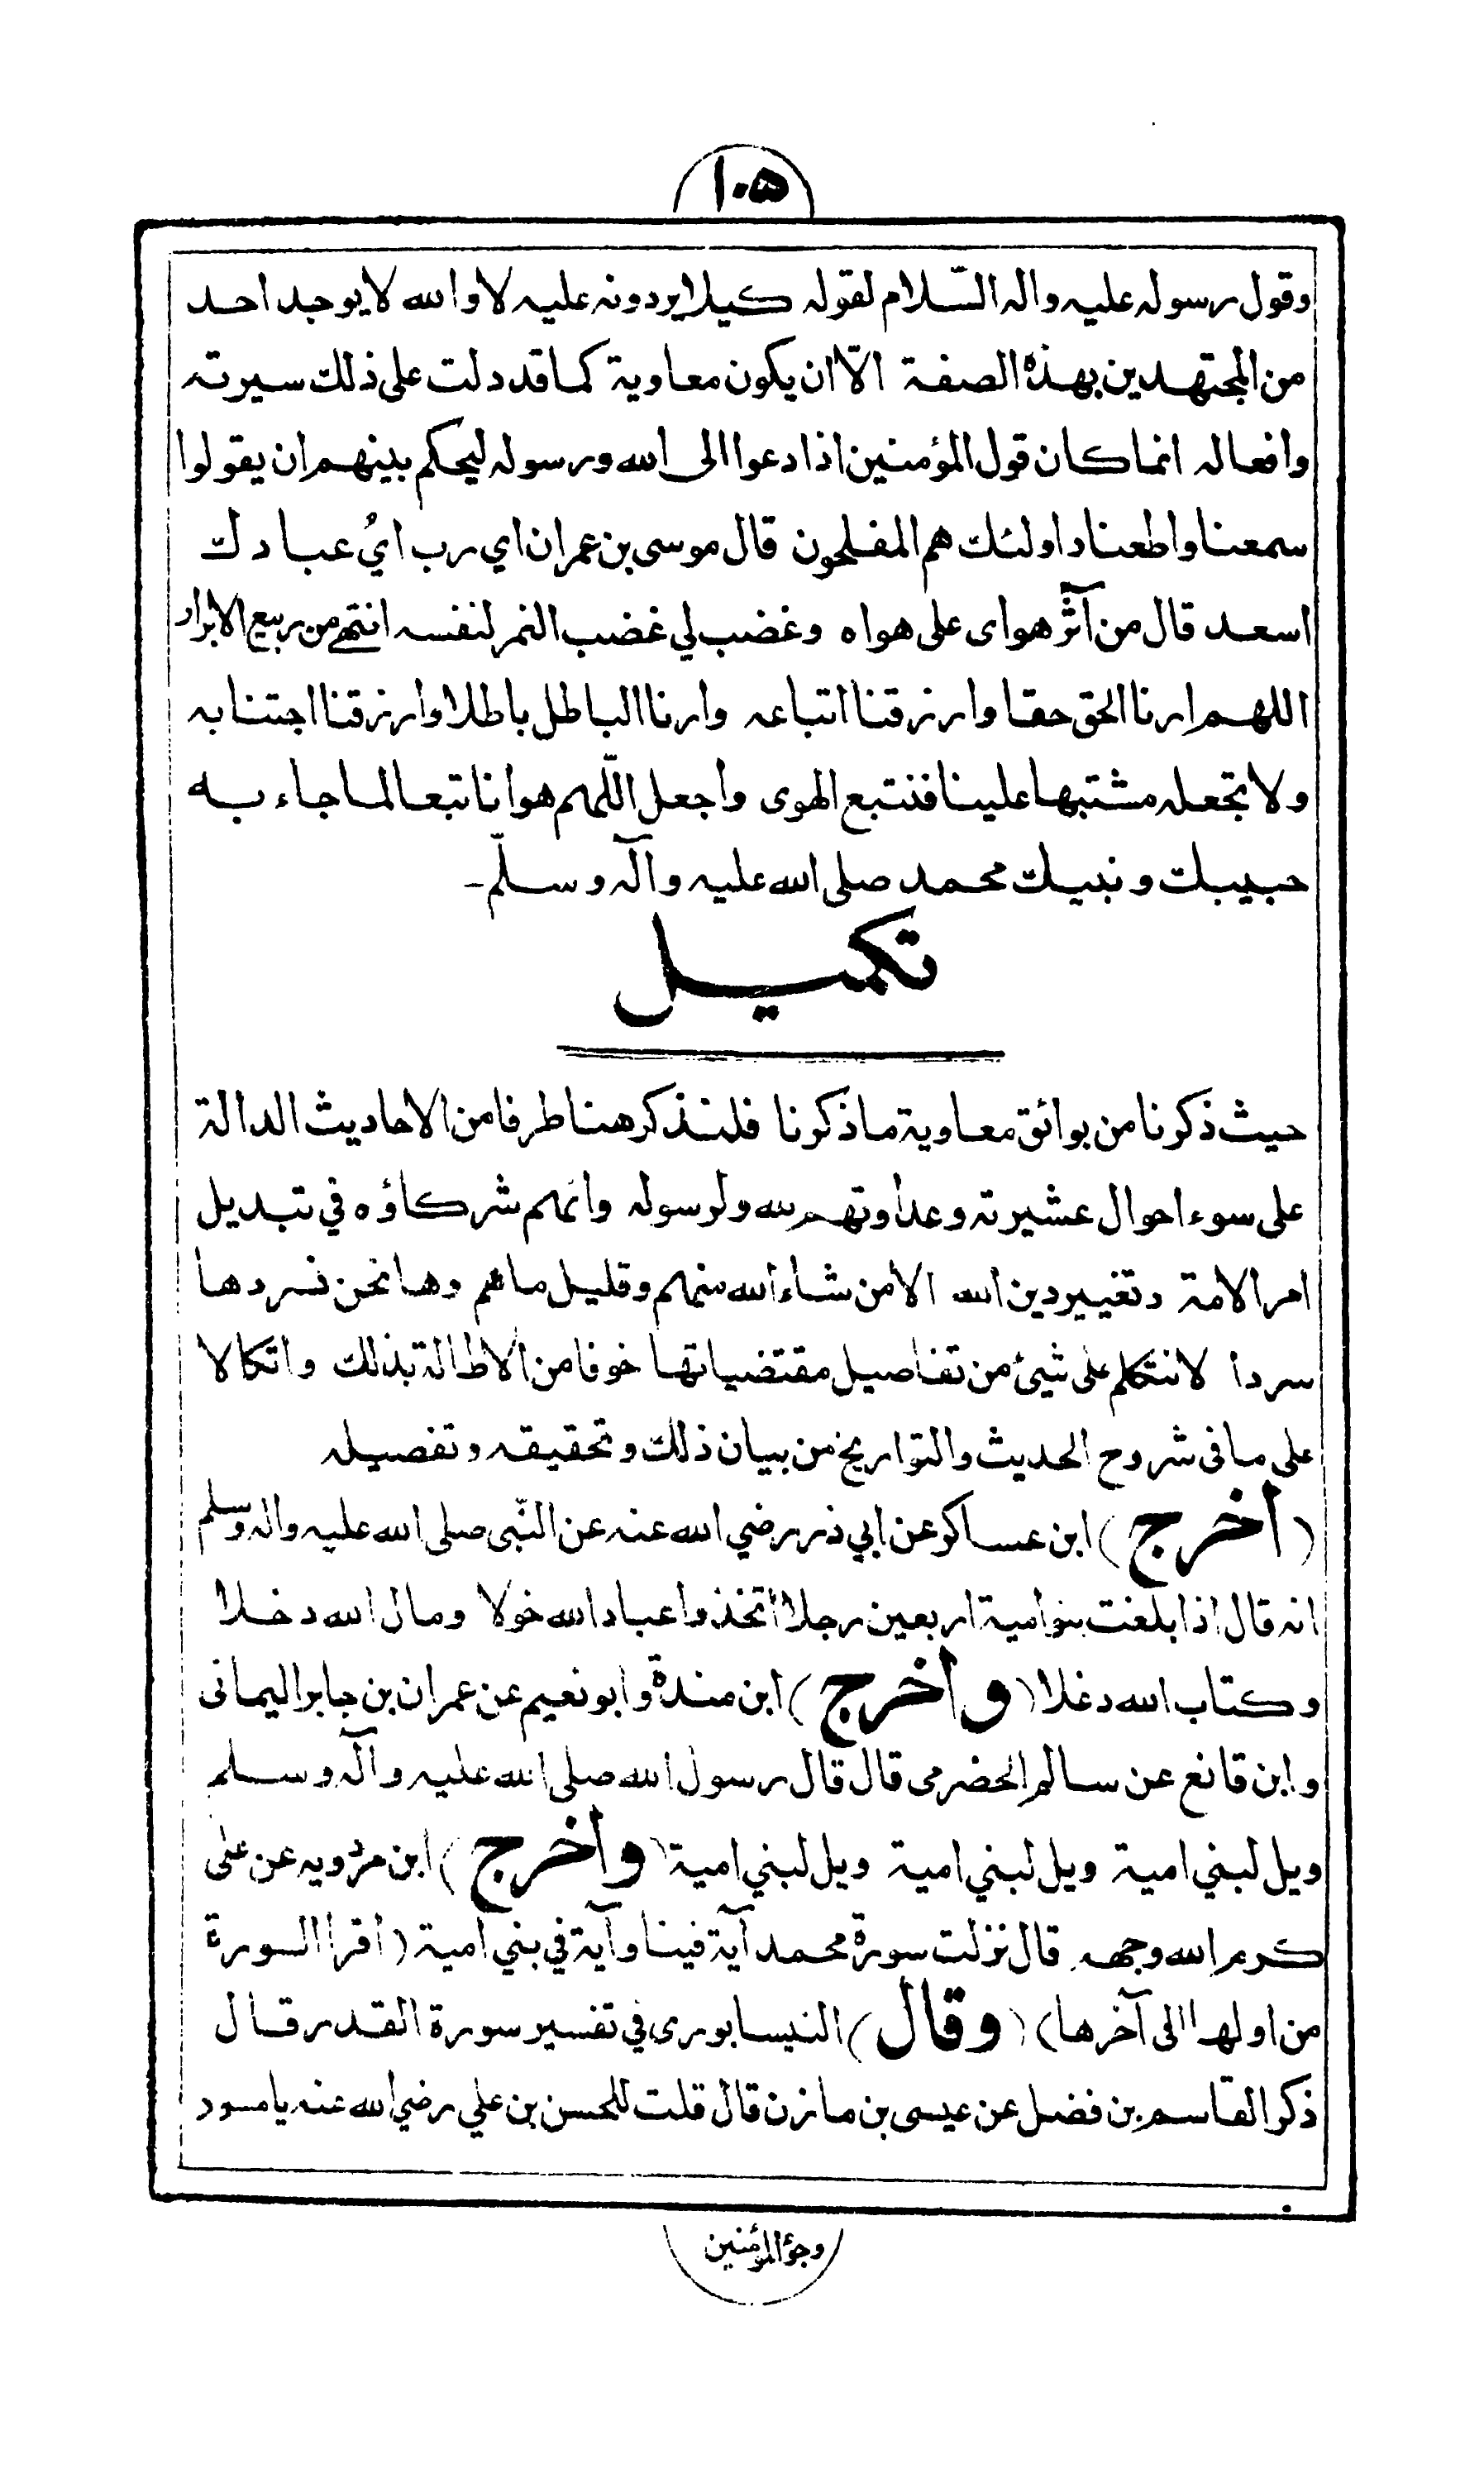 ١٠٥
وقول رسوله عليه واله السّلام لقوله كيلا يردونه عليه لا والله لا يوجد احد
من المجتهدين بهذه الصفة الّا ان يكون معاوية كما قد دلت على ذلك سيرته
وافعاله انما كان قول المؤمنين اذا دعوا الى الله ورسوله ليحكم بينهم ان يقولوا
سمعنا واطعنا واولئك هم المفلحون قال موسى بن عمران اي رب ايُ عبادك
اسعد قال من آثر هواى على هواه وغضب لي غضب النمر لنفسه انتهى من ربيع الابرار
اللهم ارنا الحق حقا وارزقنا اتباعه وارنا الباطل باطلا وارزقنا اجتنابه
ولا تجعله مشتبها علينا فنتبع الهوى واجعل اللّهم هوانا تبعا لما جاء به
حبيبك ونبيك محمد صلى الله عليه وآله وسلّم-
تكميل
حيث ذكرنا من بوائق معاوية ما ذكرنا فلنذكر هنا طرفا من الاحاديث الدالة
على سوء احوال عشيرته وعداوتهم لله ولرسوله وانهم شركاؤه في تبديل
امر الامة وتغيير دين الله الا من شاء الله منهم وقليل ما هم وها نحن نسردها
سرداً لا نتكلم على شيئ من تفاصيل مقتضياتها خوفا من الاطالة بذلك واتكالا
على ما فى شروح الحديث والتواريخ من بيان ذلك وتحقيقه وتفصيله
(اخرج) ابن عساكر عن ابي ذر رضي الله عنه عن النّبى صلى الله عليه واله وسلم
انه قال اذا بلغت بنو امية اربعين رجلا اتخذوا عباد الله خولا ومال الله دخلا
وكتاب الله دغلا (واخرج) ابن مندة وابو نعيم عن عمران بن جابر اليمانى
وابن قانع عن سالم الحضرمى قال قال رسول الله صلى الله عليه وآله وسلم
ويل لبني امية ويل لبني امية ويل لبني امية (واخرج) ابن مردويه عن على
كرم الله وجهه قال نزلت سورة محمد آية فينا وآية في بني امية (اقرا السورة
من اولها الى آخرها) (وقال) النيسابورى في تفسير سورة القدر قال
ذكر القاسم بن فضل عن عيسى بن مازن قال قلت للحسن بن علي رضي الله عنه يا مسود
وجوه المؤمنين